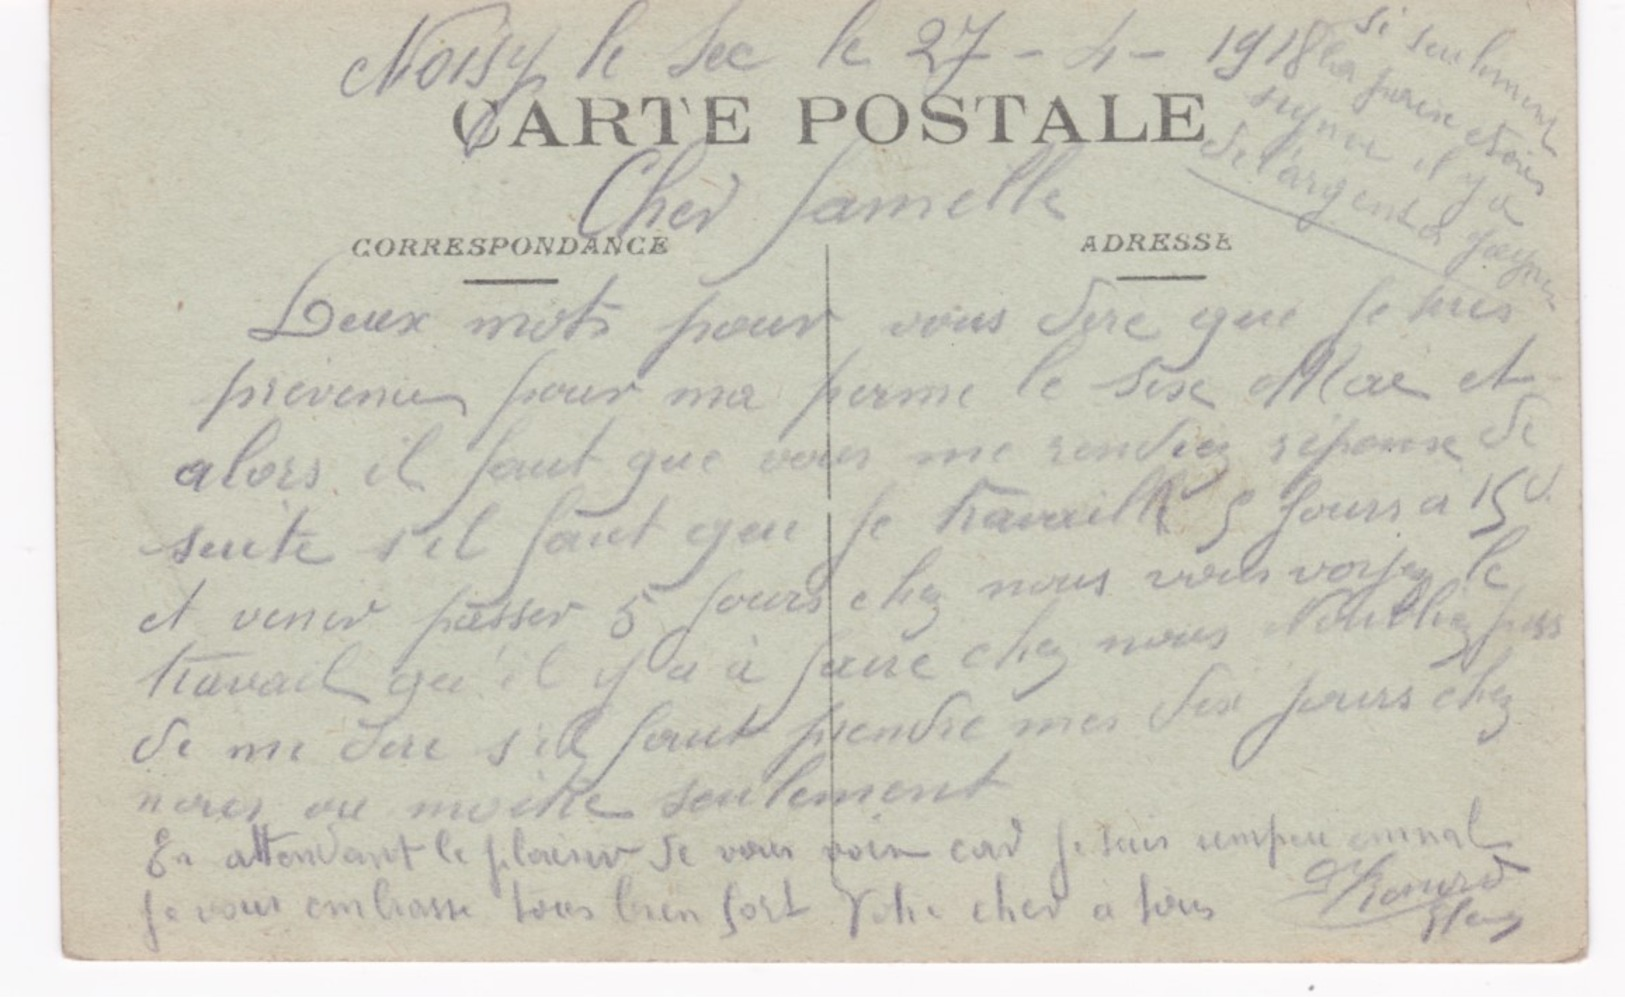 Noisy le Sec le 27 - 4 - 1918
si seulement
la
il y a
de l'argent a gagner
CARTE POSTALE
Cher famelle
CORRESPONDANCE
ADRESSE
Deux mots pour vous dire que je suis
prevenu pour ma perme le sise Mai et
alors il faut que vous me rendiez réponse de
suite s'il faut que je travaille 5 jours a 15
et venir passer 5 jours chez nous vous voyez le
travail qu'il y a à faire chez nous N'oubliez pas
de me dire s'il faut prendre mes dix jours chez
nous ou moitie seulement
En attendant le plaisir de vous voir car je suis umpeu
je vous embrasse tous bien fort Votre cher a tous